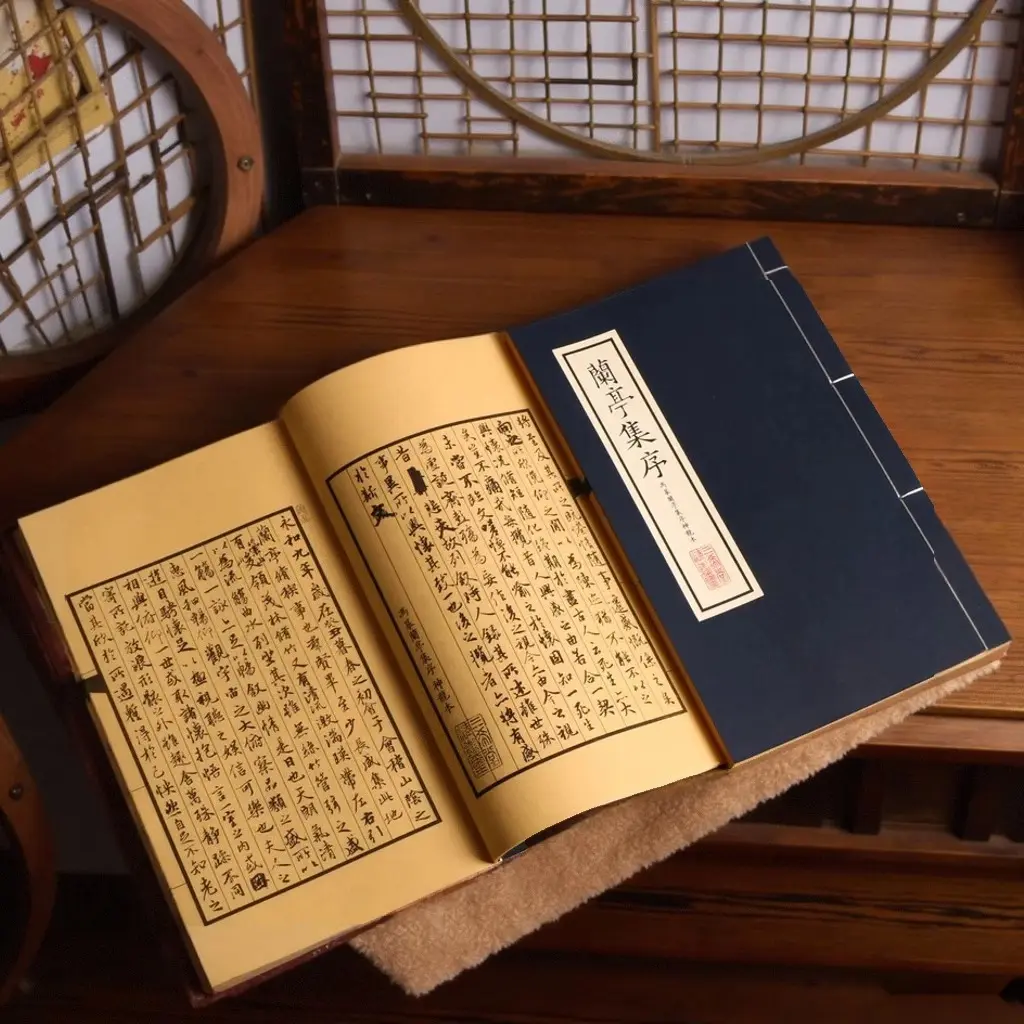 蘭亭集序
馮摹蘭亭集序神龍本
將至及其所之既惓情隨事遷感慨係之矣
向之所欣俛仰之閒以為陳迹猶不能不以之
興懷況脩短隨化終期於盡古人云死生亦大
矣豈不痛哉每攬昔人興感之由若合一契
未嘗不臨文嗟悼不能喻之於懷固知一死
生為虛誕齊彭殤為妄作後之視今亦由今之視
昔悲夫故列敘時人錄其所述雖世殊
事異所以興懷其致一也後之攬者亦將有感
於斯文
馮摹蘭亭集序神龍本
永和九年歲在癸丑暮春之初會于會稽山陰之
蘭亭脩禊事也群賢畢至少長咸集此地
有崇山峻領茂林脩竹又有清流激湍暎帶左右引
以為流觴曲水列坐其次雖無絲竹管弦之盛
一觴一詠亦足以暢敘幽情是日也天朗氣清
惠風和暢仰觀宇宙之大俯察品類之盛所以
遊目騁懷足以極視聽之娛信可樂也夫人之
相與俯仰一世或取諸懷抱悟言一室之內或
因寄所託放浪形骸之外雖趣舍萬殊靜躁不同
當其欣於所遇暫得於己快然自足不知老之